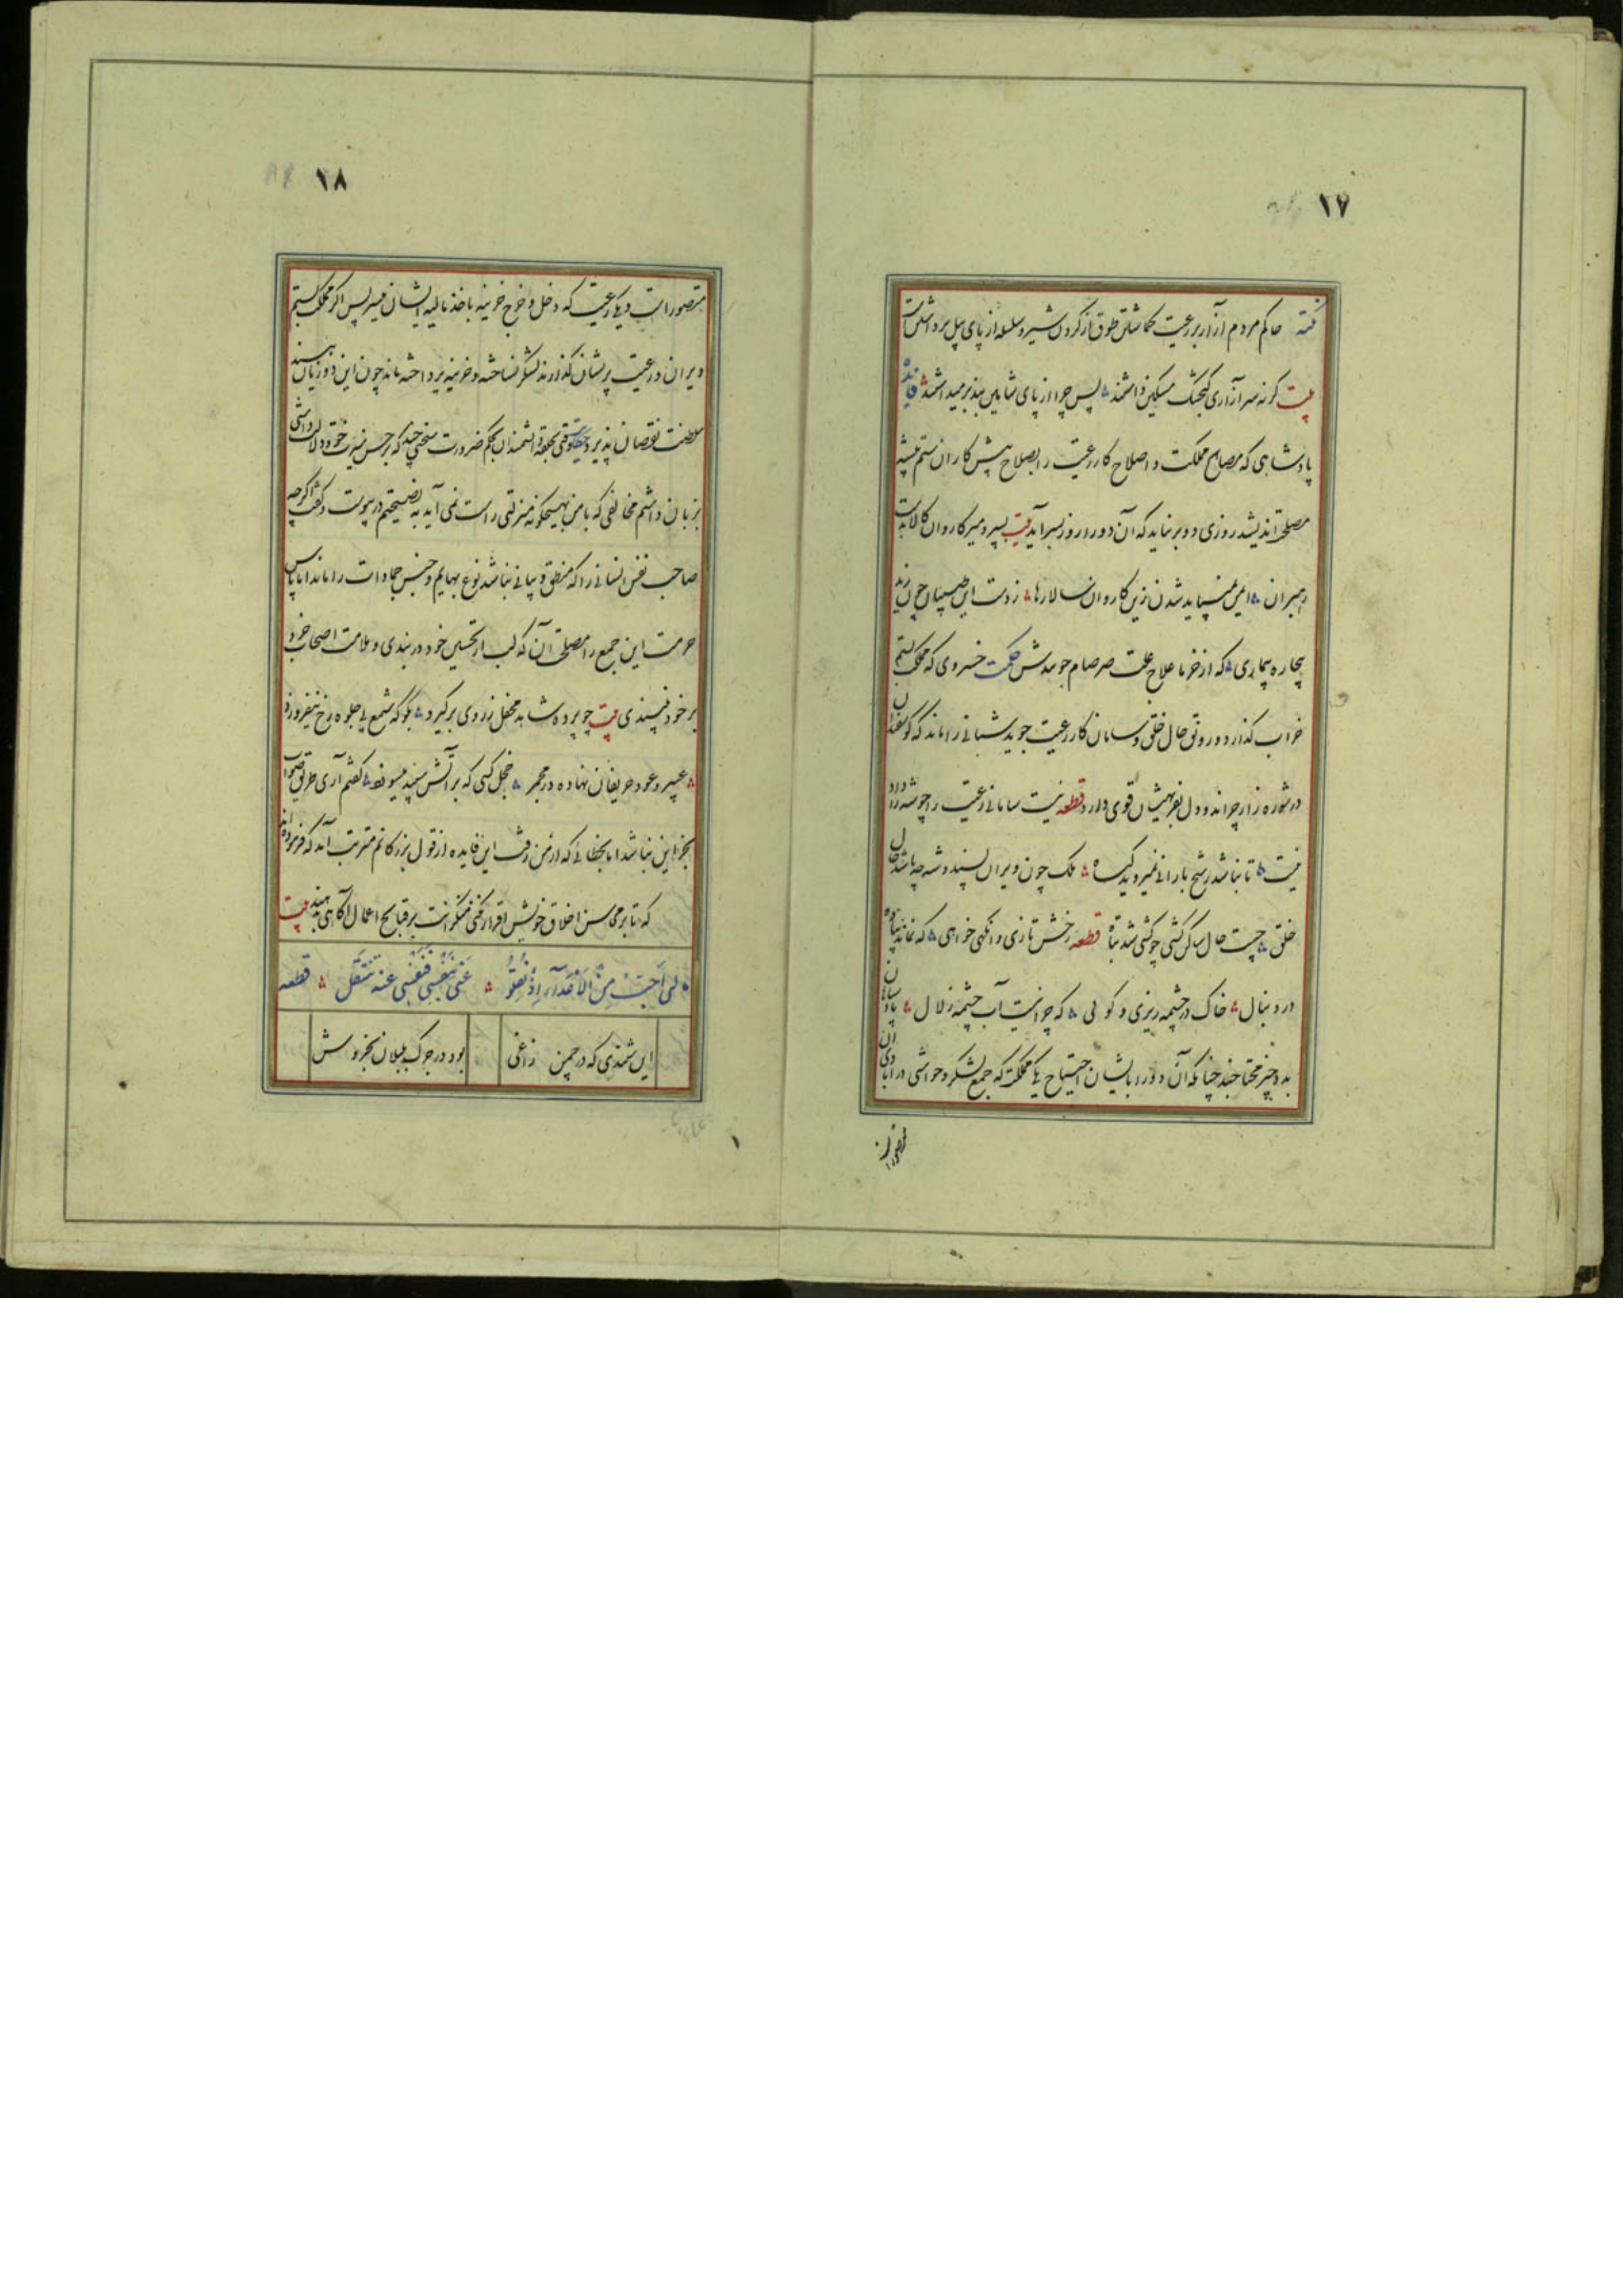 ۱۷
نکته حاکم مردم آزار بر رعیت گماشتن طوق از گردن شیر و سلسله از پای پیل برداشتن است
بیت گر نه سر آزاری گنجشک مسکین داشتند پس چرا از پای شاهین بند بر میداشتند فایده
پادشاهی که مصالح مملکت و اصلاح کار رعیت را بصلاح پیش کاران ستم پیشه
مصلحت اندیشد روزی دو بر نیاید که آن دو را روز بسر آید بیت بسپرد میر کاروان کالا بدست
رهبران ایمن نباید شدن زین کاروان سالارها زدست این طبیبان چون زید
بیچاره بیماری که از خرما علاج علت صرصام جویندش حکمت خسروی که مملکت بستم
خراب گذارد و رونق حال خلق و سامان کار رعیت جوید شبانی را ماند که گوسفندان
در شوره زار چراند و دل بفربهیشان قوی دارد قطعه نیست سامانی رعیت را چو شه را داد
نیست تا نباشد رشح بارانی نمیروید گیاه ملک چون ویران پسندد شه چه باشد حال
خلق چیست حال ساکن کشتی چو کشتی شد تباه قطعه رخش تازی و انگهی خواهی که نماند پیاده
در دنبال خاک در چشمه ریزی و گوئی که چرا نیست آب چشمه زلال پادشاهان
بدو چیز محتاجند چنانکه آن دو را بایشان احتیاج یکی مملکت که جمع لشکر و حواشی در آبادی آن
متصور است
۱۸
متصور است و یکی رعیت که دخل و خرج خزینه باخذ مالیه ایشان میسر پس اگر مملکت بستم
ویران و رعیت پریشان گذارند لشکر نساخته و خزینه نپرداخته ماند چون این دو زیان بینند
سلطنت نقصان پذیرد حکایت وقتی بحلقه دانشمندان بحکم ضرورت سخنی چند که بر حسن سیرت خود دلالت داشتی
بر زبان داشتم مخالفی که با من بهیچگونه منزلتی راست نمی آید به نصیحتم در پیوست و گفت اگر چه
صاحب نفس انسانی را که منطق و بیانی نباشد نوع بهایم و جنس جمادات را ماند اما پاس
حرمت این جمع را مصلحت آن که لب از تحسین خود در بندی و ملامت اصحاب خرد
بر خود نپسندی بیت چو پرده شاهد محفل ز روی برگیرد بگو که شمع بی جلوه رخ نیفروزد
عبیر و عود حریفان نهاده در مجمر خجل کسی که بر آتش سپند میسوزد گفتم آری طریق صواب
بجز این نباشد اما بخطائی که از من رفت این فایده از قول بزرگانم مترتب آمد که فرموده اند
که تا بر محاسن اخلاق خویش اقرار نکنی منکرانت بر قبایح اعمال آگاهی ندهند بیت
مالی أحب من الأعداء إذ نقلو عنی بنقصی فنفسی عنه تنتقل قطعه
این شنیدی که در چمن زاغی
بود در جرگ بلبلان بخروش